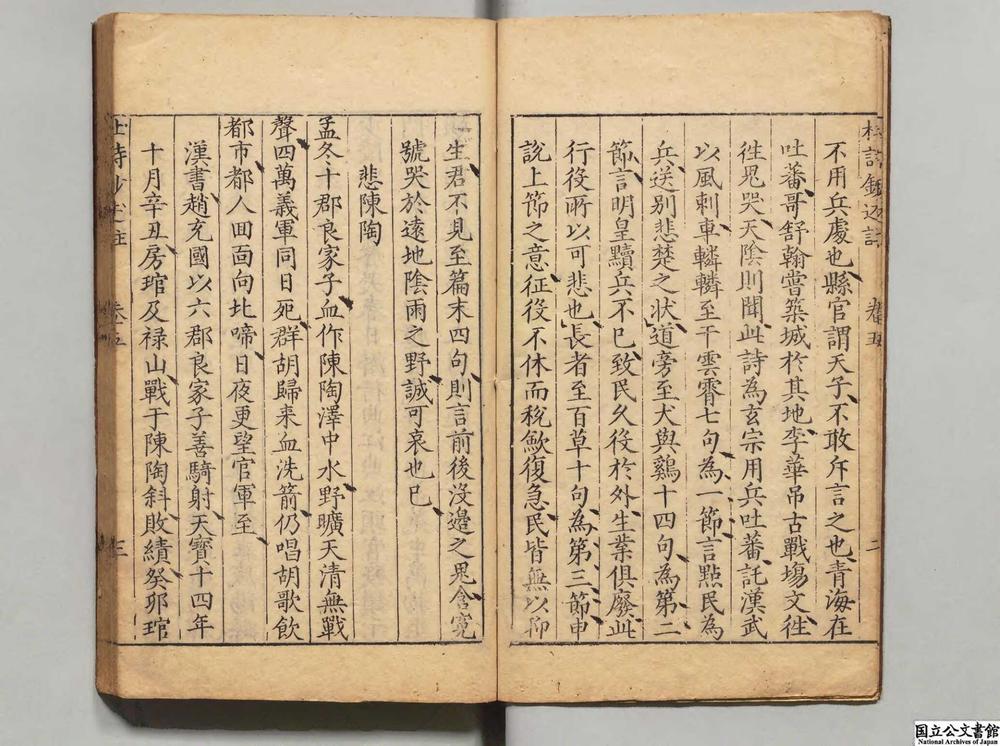 杜詩鈔述註 卷五 二
不用兵處也縣官謂天子不敢斥言之也青海在
吐蕃哥舒翰嘗築城於其地李華吊古戰塲文徃
徃鬼哭天陰則聞此詩為玄宗用兵吐蕃託漢武
以風刺車轔轔至干雲霄七句為一節言點民為
兵送別悲楚之狀道旁至犬與鷄十四句為第二
節言明皇黷兵不已致民久役於外生業俱廢此
行役所以可悲也長者至百草十句為第三節申
說上節之意征役不休而稅歛復急民皆無以仰
生君不見至篇末四句則言前後沒邉之鬼含寃
號哭於遠地隂雨之野誠可哀也已
悲陳陶
孟冬十郡良家子血作陳陶澤中水野曠天清無戰
聲四萬義軍同日死群胡歸来血洗箭仍唱胡歌飲
都市都人回面向北啼日夜更望官軍至
漢書趙充國以六郡良家子善騎射天寶十四年
十月辛丑房琯及禄山戰于陳陶斜敗績癸卯琯
杜詩鈔述註 卷五 三
国立公文書館
National Archives of Japan